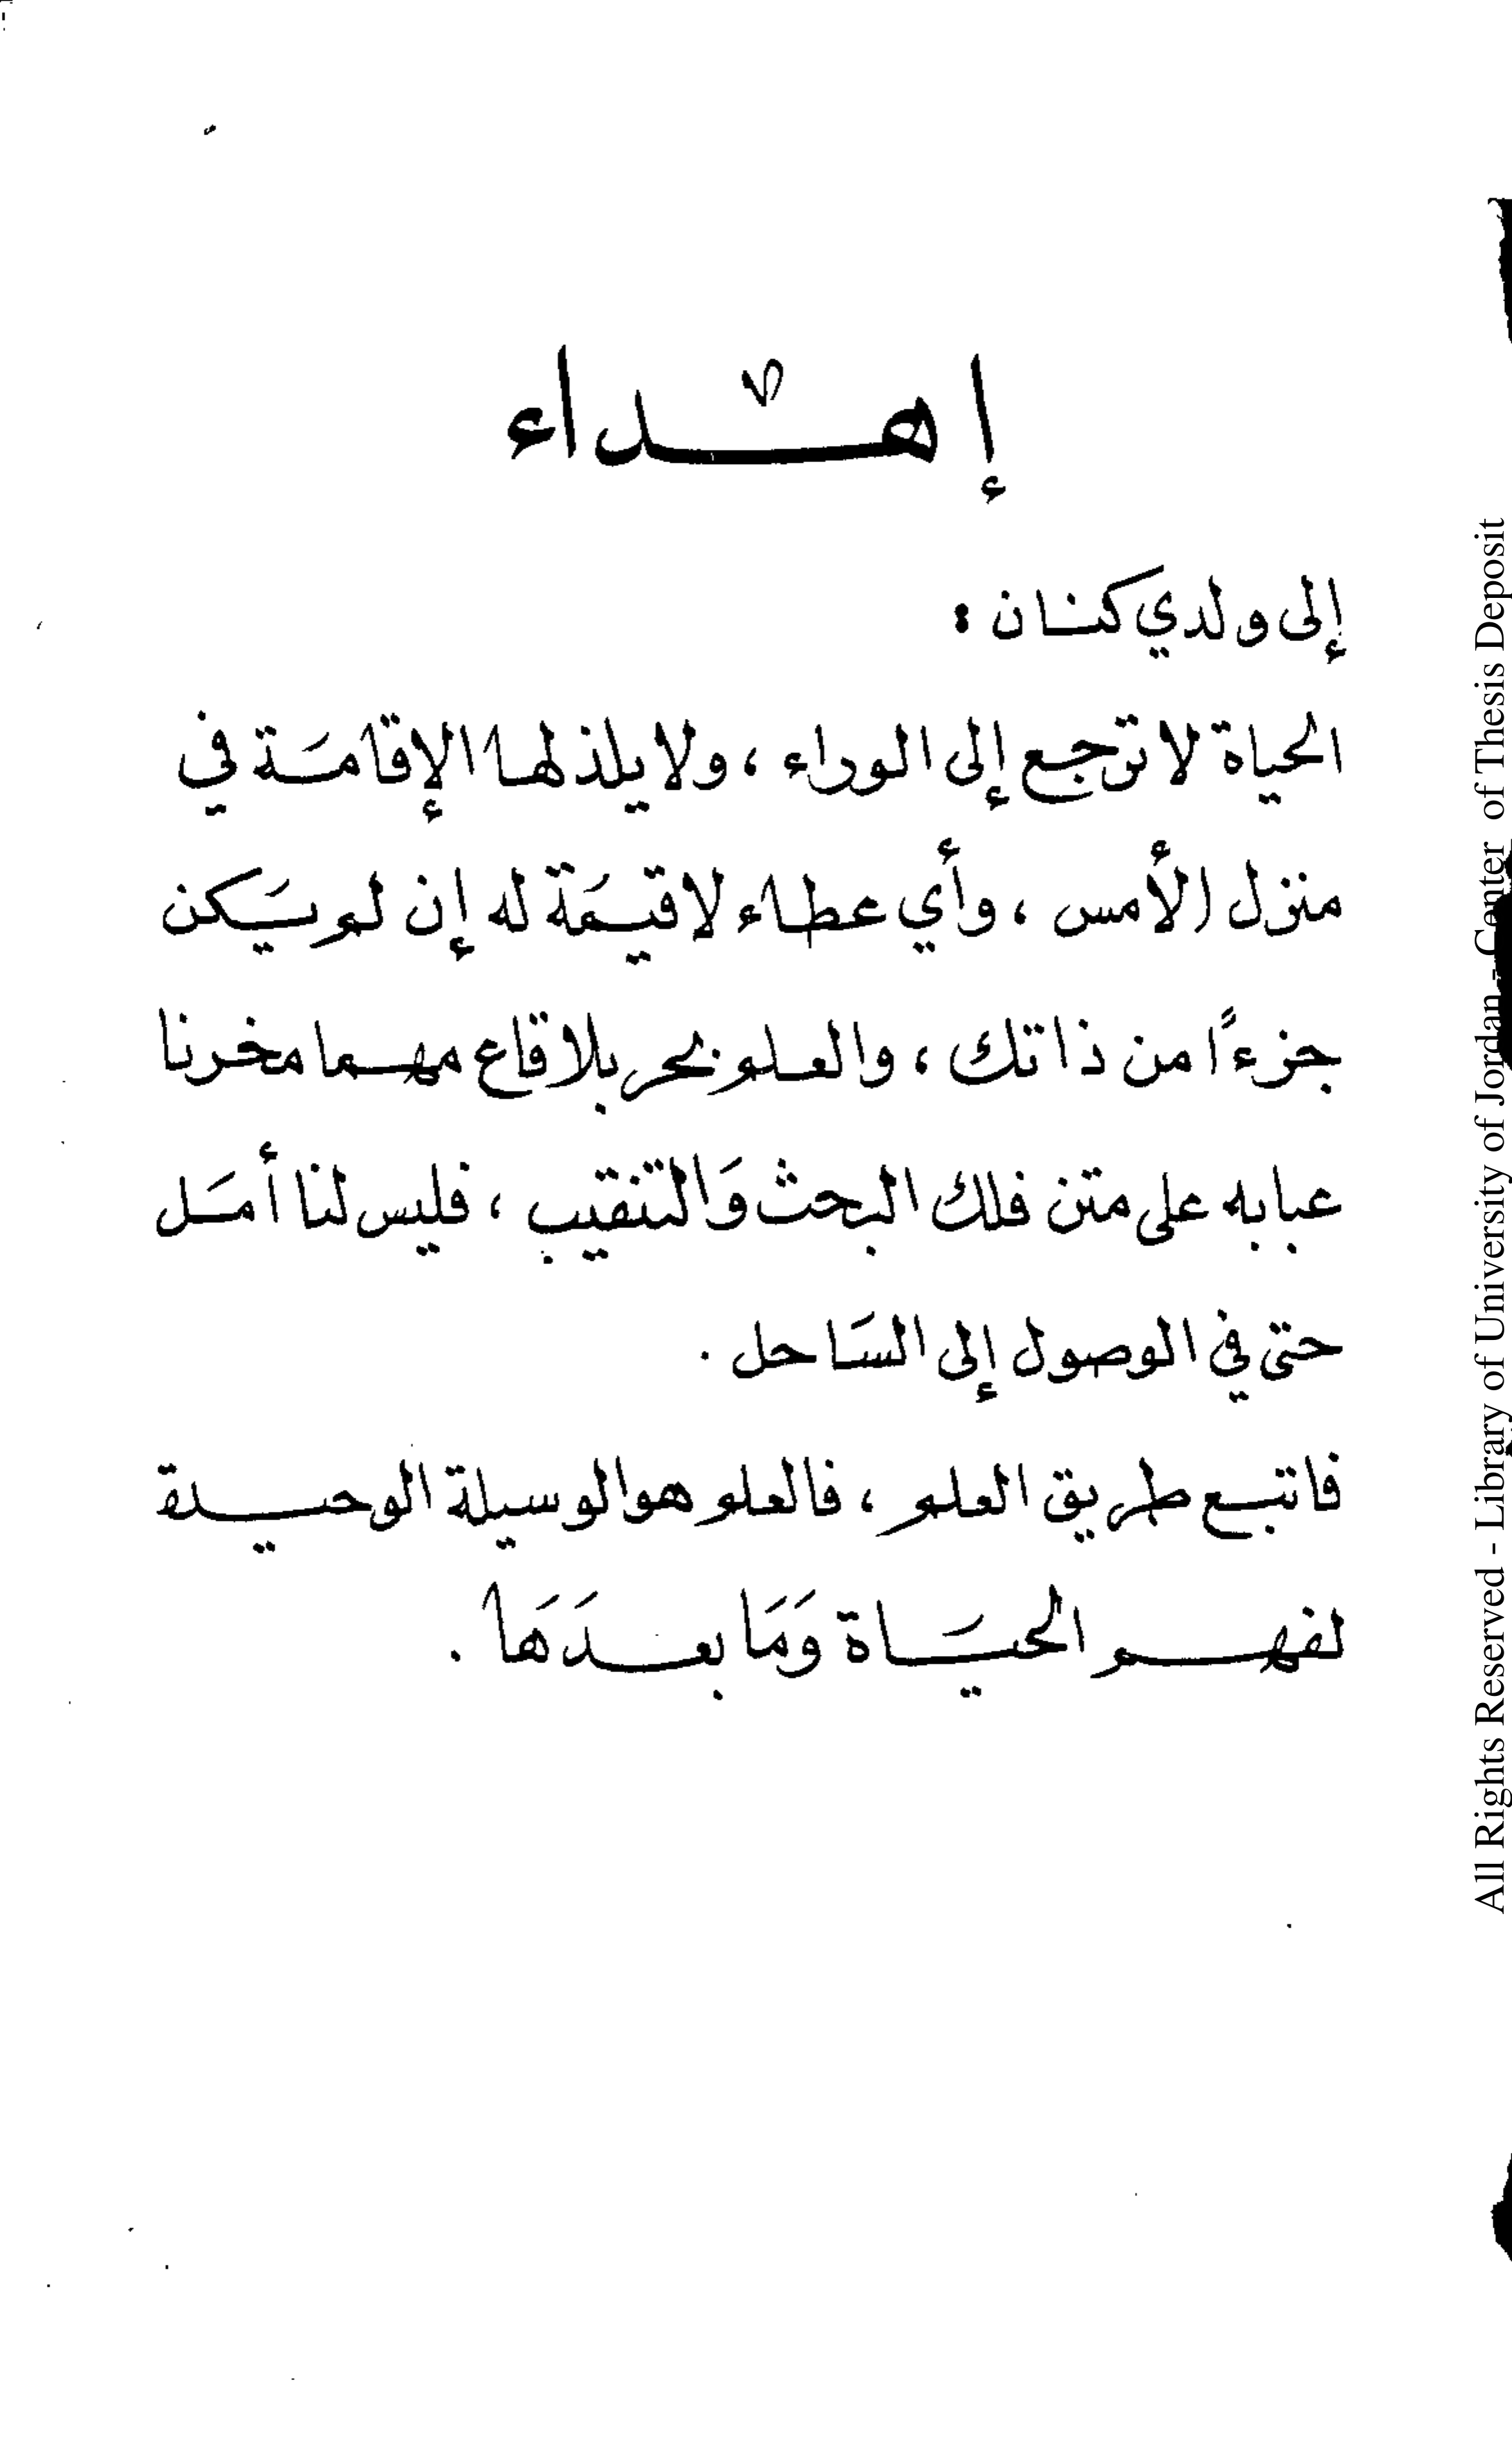 إهداء
إلى ولدي كنان :
الحياة لا ترجع إلى الوراء ، ولا يلذ لها الإقامَة في
منزل الأمس ، وأي عطاء لا قيَمة له إن لم يَكن
جزءًا من ذاتك ، والعلم بحر بلا قاع مهما مخرنا
عبابه على متن فلك البحث وَالتنقيب ، فليس لنا أمَل
حتى في الوصول إلى السَاحل .
فاتبع طريق العلم ، فالعلم هو الوسيلة الوحيدة
لفهم الحيَاة وَمَا بعدَهَا .
All Rights Reserved - Library of University of Jordan - Center of Thesis Deposit